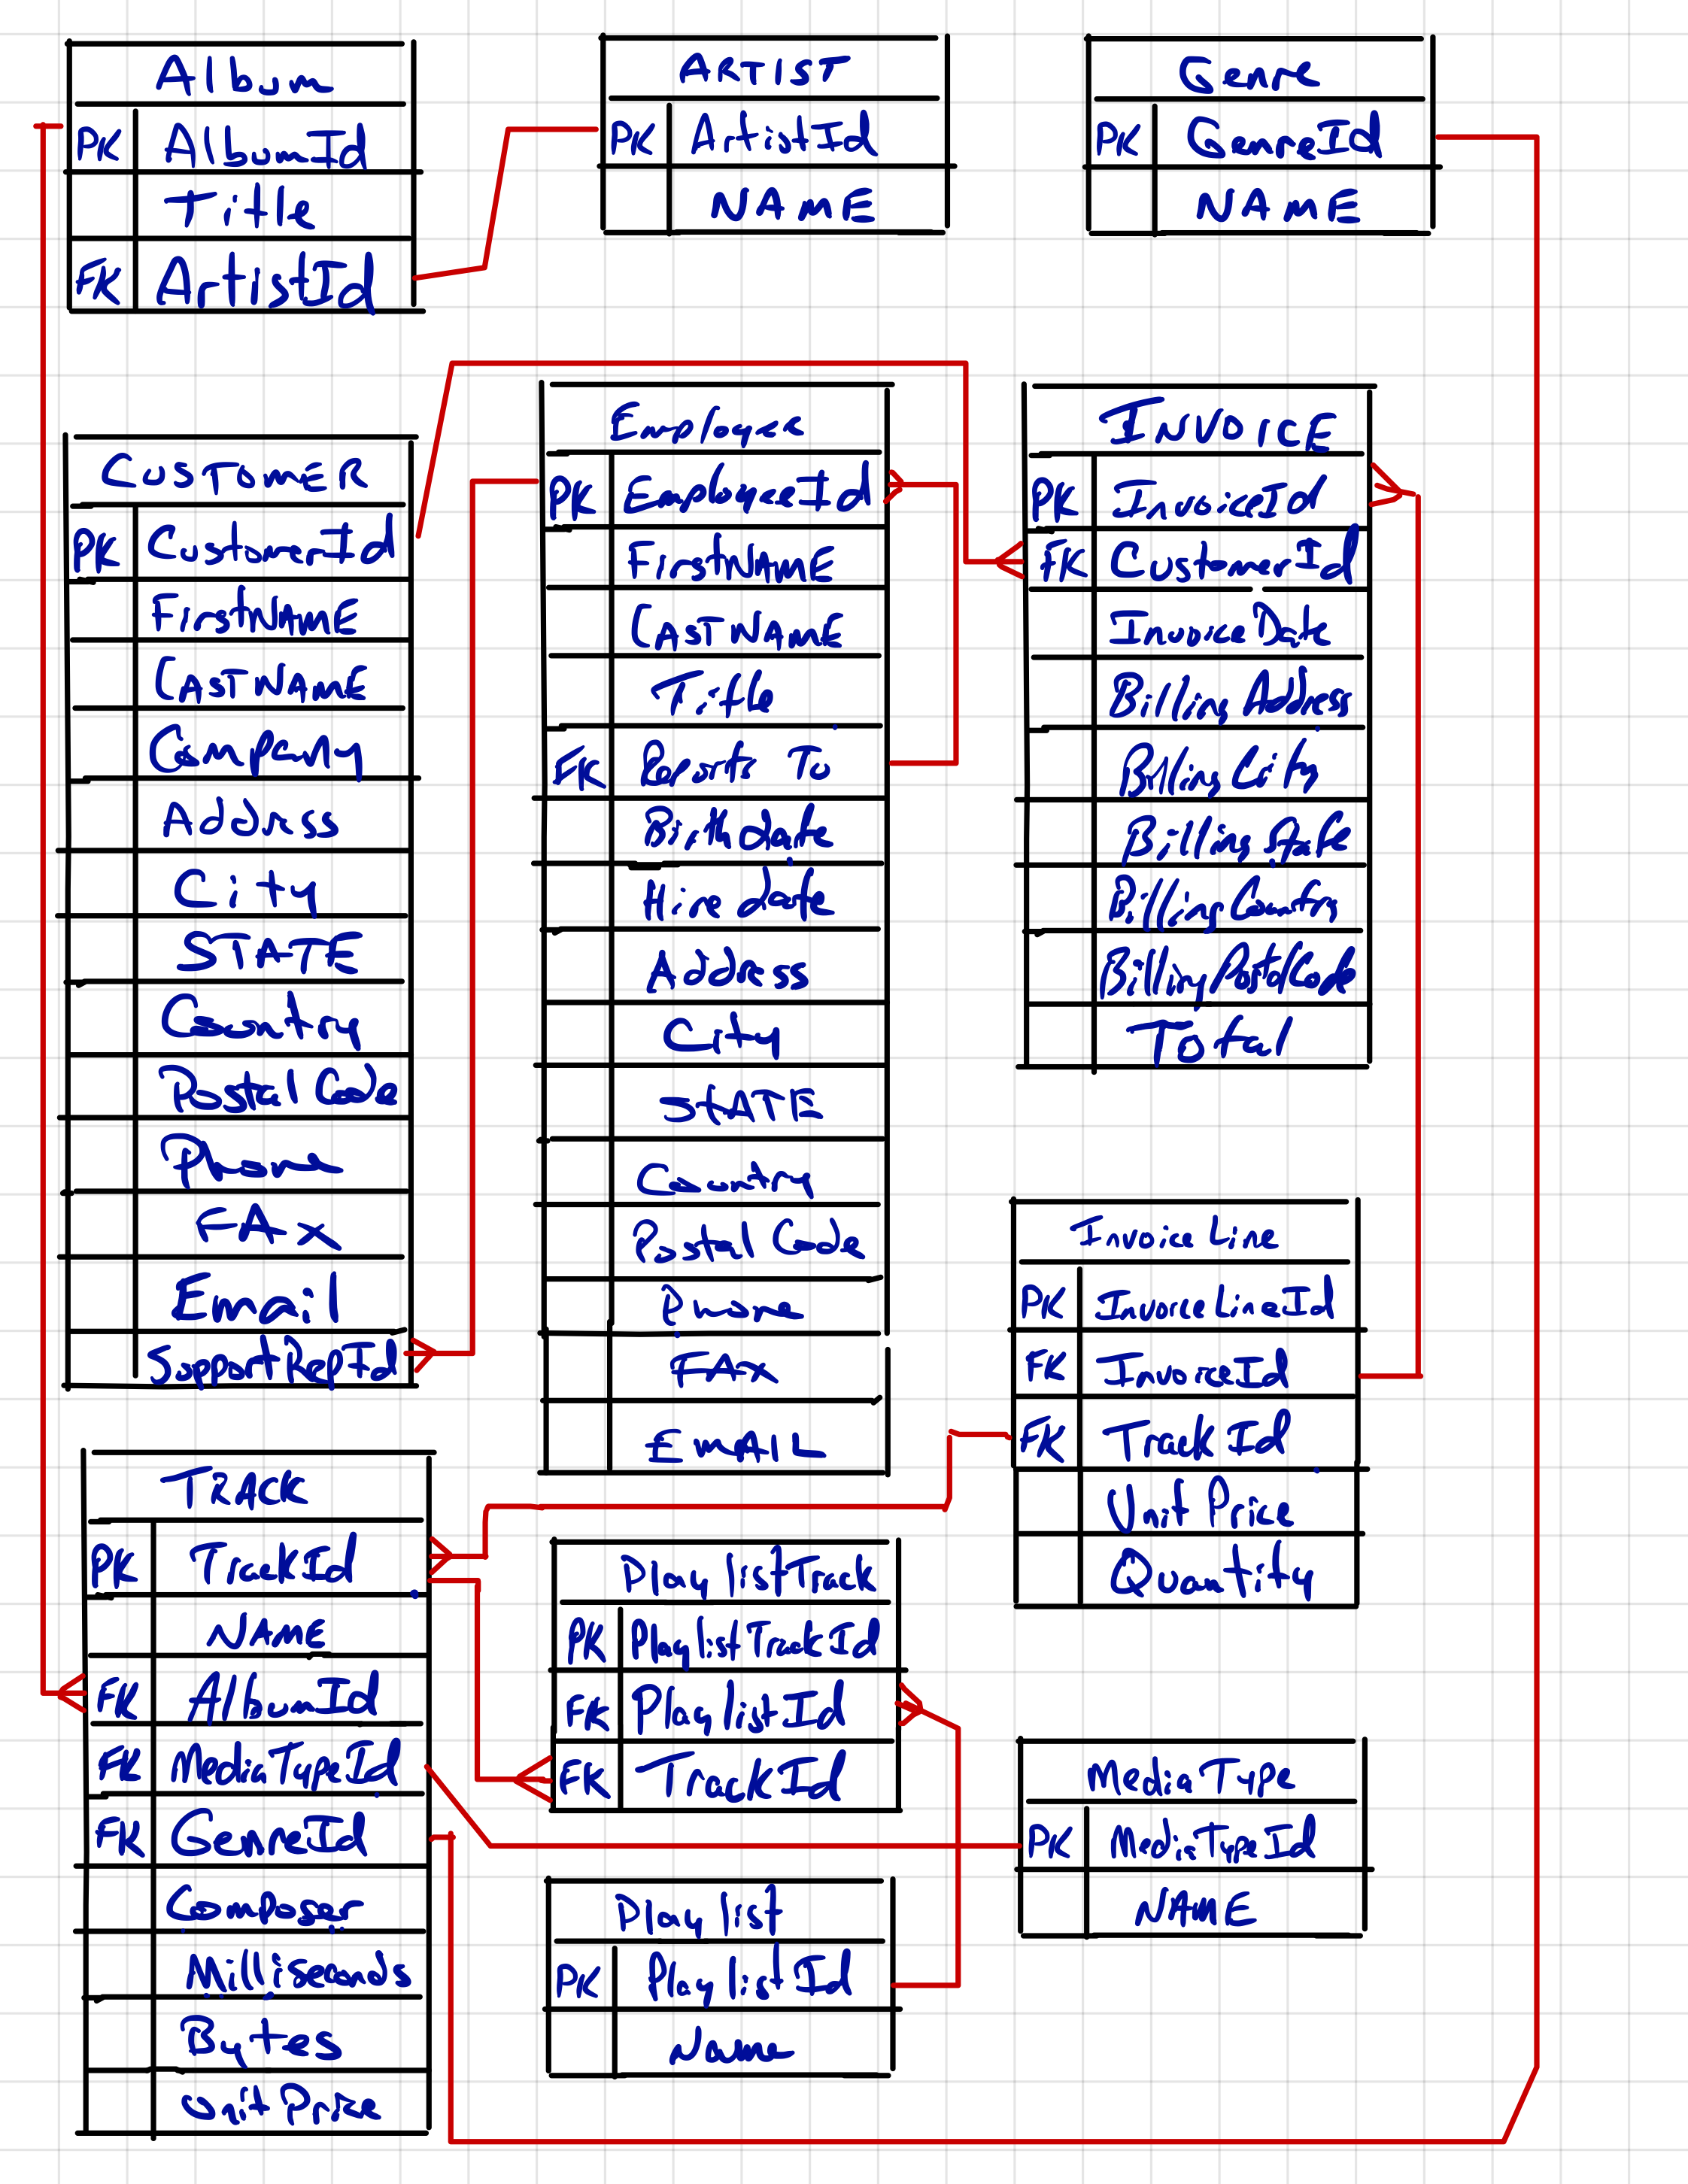 Album
PK AlbumId
Title
FK ArtistId
ARTIST
PK ArtistId
NAME
Genre
PK GenreId
NAME
CUSTOMER
PK CustomerId
FirstNAME
LASTNAME
Company
Address
City
STATE
Country
Postal Code
Phone
FAX
Email
SupportRepId
Employee
PK EmployeeId
FirstNAME
LASTNAME
Title
FK Reports To
Birthdate
Hire date
Address
City
STATE
Country
Postal Code
Phone
FAX
EMAIL
INVOICE
PK InvoiceId
FK CustomerId
Invoice Date
Billing Address
Billing City
Billing State
Billing Country
Billing PostalCode
Total
Invoice Line
PK InvoiceLineId
FK InvoiceId
FK Track Id
Unit Price
Quantity
TRACK
PK TrackId
NAME
FK AlbumId
FK MediaTypeId
FK GenreId
Composer
Milliseconds
Bytes
Unit Price
Play listTrack
PK Play list TrackId
FK Play listId
FK TrackId
Play list
PK Play list Id
Name
Media Type
PK MediaTypeId
NAME